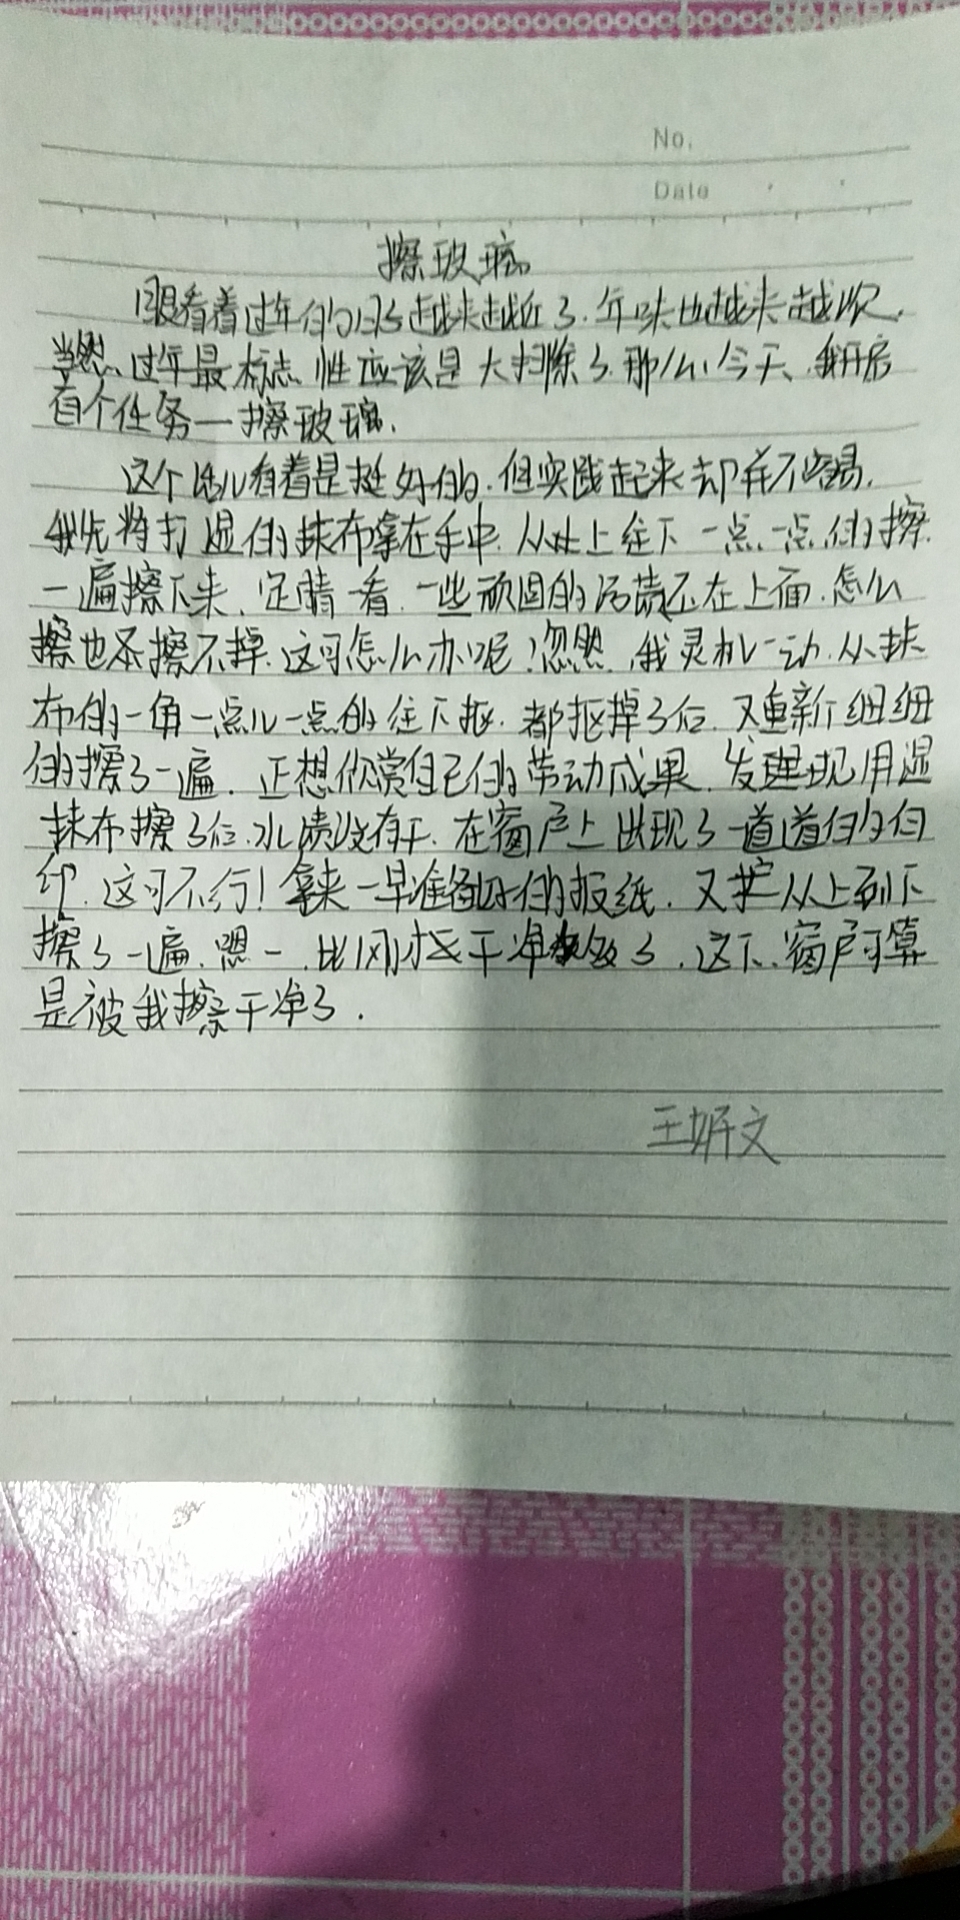 No.
Date
擦玻璃
眼看着过年的日子越来越近了.年味也越来越浓.
当然、过年最标志性应该是大扫除了.那么、今天、我开启
首个任务—擦玻璃.
这个活儿看着是挺好的.但实践起来却并不容易.
我先将打湿的抹布拿在手中.从上往下一点一点的擦.
一遍擦下来、定睛一看.一些顽固的污渍还在上面.怎么
擦也擦不掉.这可怎么办呢？忽然、我灵机一动.从抹
布的一角一点儿一点的往下抠.都抠掉了后.又重新细细
的擦了一遍.正想欣赏自己的劳动成果.发现用湿
抹布擦了后.水渍没有干.在窗户上出现了一道道的白
印.这可不行！拿来一早准备好的报纸.又从上到下
擦了一遍.嗯一.比刚才干净多了.这下、窗户可算
是被我擦干净了.
王妍文